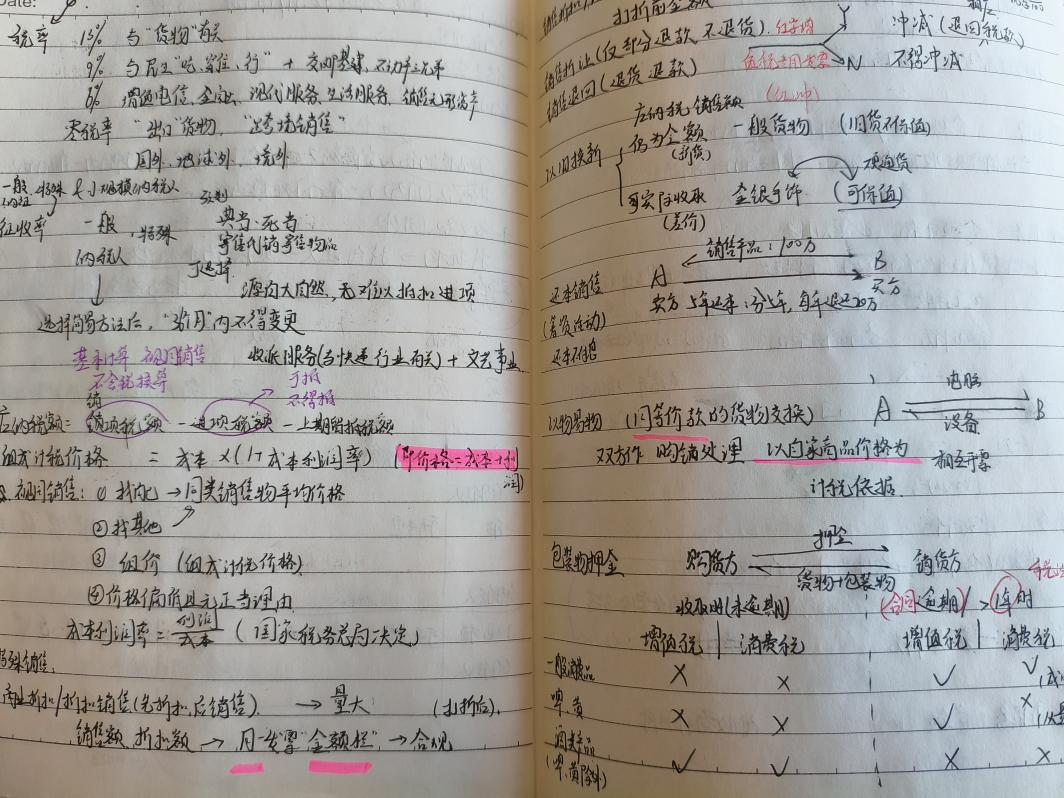 Date:
税率 13% 与"货物"有关
9% 与民生"吃、穿、住、行" + 交邮基建、不动产
6% 增值电信、金融、现代服务、生活服务、销售无形资产
零税率 "出口"货物、"跨境销售"
国外、地球外、境外
一般 特殊 小规模纳税人
征收率 一般 特殊
纳税人
典当·死当
寄售代销寄售物品
可选择
源自大自然,无难以抵扣进项
选择简易方法后,"36月"内不得变更
基本计算 视同销售
不含税换算
收派服务(与快递行业有关) + 文艺事业
可抵
不得抵
销
应纳税额= 销项税额 - 进项税额 - 上期留抵税额
组成计税价格 = 成本 ×(1+成本利润率)
视同销售: ① 找自己 → 同类销售物平均价格
② 找其他
③ 组价 (组成计税价格)
④ 价格偏 且无正当理由
成本利润率 = 利润/成本 (国家税务总局决定)
特殊销售
商业折扣/折扣销售(先折扣,后销售) → 量大 (打折后)
销售额 折扣额 → 同一发票"金额栏" → 合规
打折前金额
销售折让(仅部分退款 不退货)
Y 冲减(退回税款)
N 不得冲减
销售退回(退货 退款)
(红冲)
应纳税 销售额
以旧换新
仍为全额 一般货物 (旧货不保值)
(新货)
硬通货
可实际收取 金银手饰 (可保值)
(差价)
销售产品:100万
A B
还本销售
买方
卖方 5年还本:分5年,每年退还20万
(筹资活动)
电脑
以物易物 (同等价款的货物交换) A B
设备
双方作 购销处理 以自家商品价格为 相互开票
计税依据
押金
包装物押金 购货方 销货方
货物+包装物
收取时(未逾期) (合同逾期) >1年时
增值税 消费税 增值税 消费税
一般消费品 × × √ √
啤、黄 × × √ ×
酒类产品 √ √ × ×
(啤、黄除外)